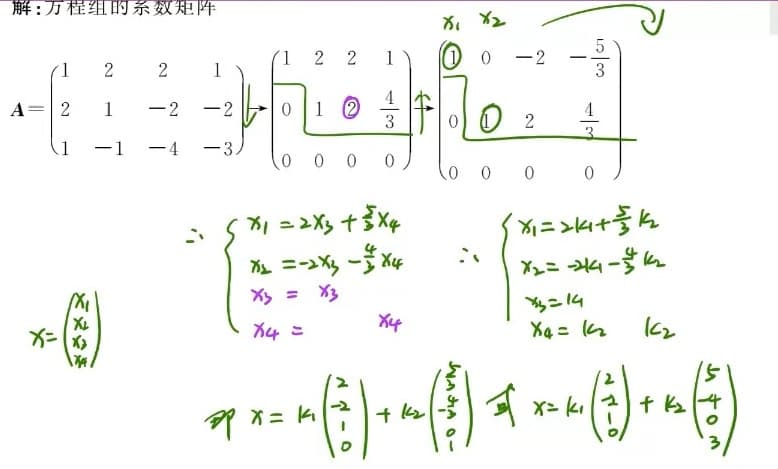 解:方程组的系数矩阵
x₁ x₂
A= (1 2 2 1; 2 1 −2 −2; 1 −1 −4 −3) → (1 2 2 1; 0 1 2 4/3; 0 0 0 0) → (1 0 −2 −5/3; 0 1 2 4/3; 0 0 0 0)
∴ { x₁ = 2x₃ + 5/3 x₄ ∴ { x₁ = 2k₁ + 5/3 k₂
x₂ = -2x₃ - 4/3 x₄ x₂ = -2k₁ - 4/3 k₂
x₃ = x₃ x₃ = k₁
x₄ = x₄ x₄ = k₂ k₂
x = (x₁; x₂; x₃; x₄)
即 x = k₁ (2; -2; 1; 0) + k₂ (5/3; -4/3; 0; 1) 或 x = k₁ (2; -2; 1; 0) + k₂ (5; -4; 0; 3)